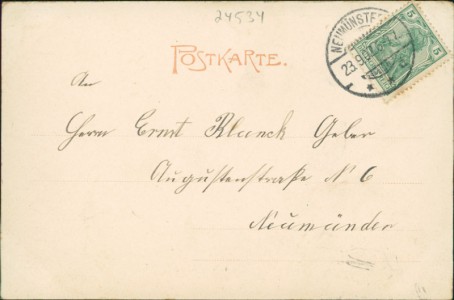 24534
POSTKARTE.
NEUMÜNSTER
23.9.07.
5
5
An
Herrn Ernst Klanck Geber
Augustenstraße N 6
Neumünster